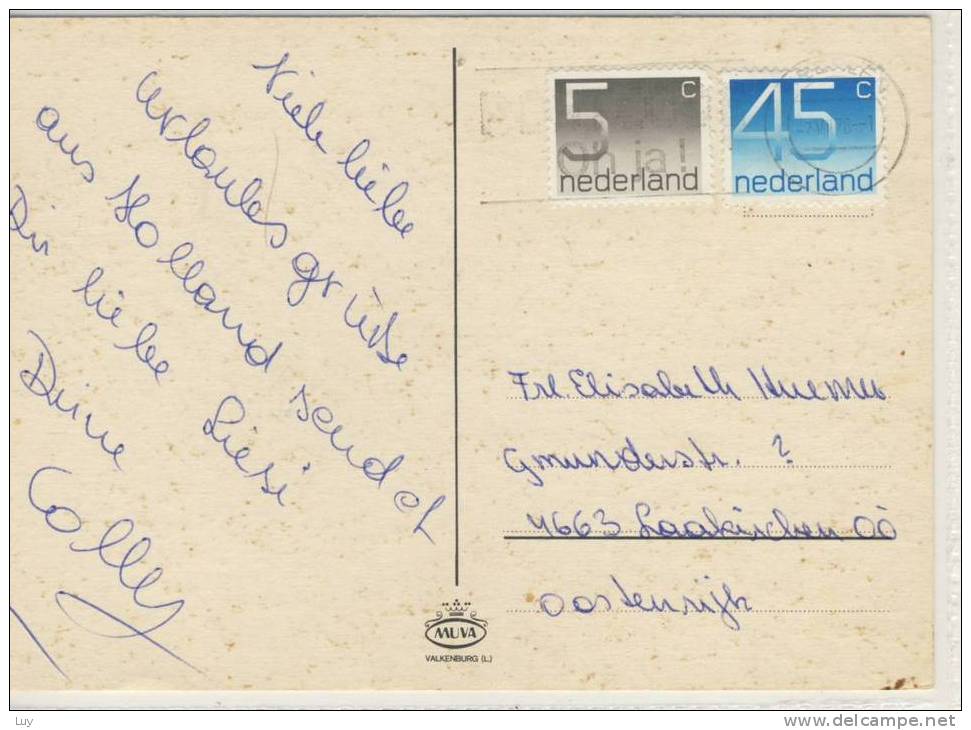 Viele liebe
Urlaubsgrüße
aus Holland sendet
Dir liebe Liesi
Deine
5 c
nederland
45 c
nederland
Oh ja!
Frl. Elisabeth Huemer
Gmunderstr. ?
4663 Laakirchen OÖ
Oostenrijk
MUVA
VALKENBURG (L.)
Luy
www.delcampe.net